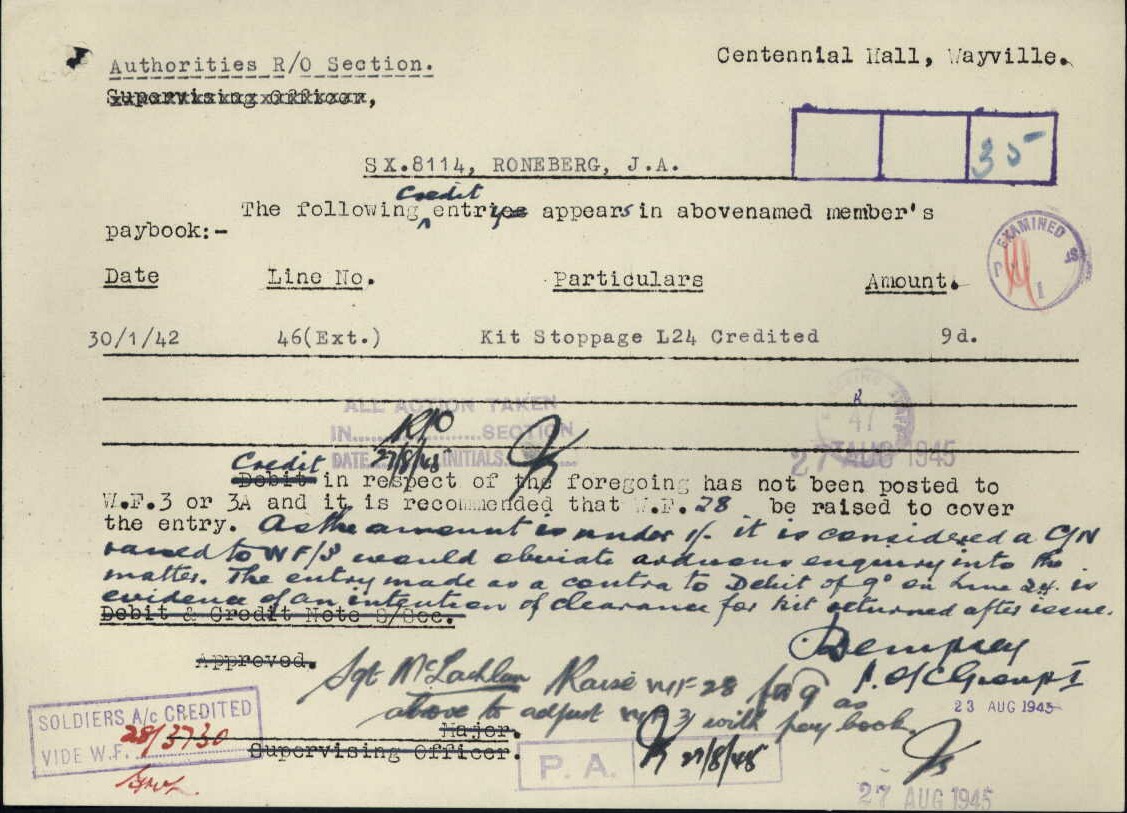 Authorities R/O Section.
Centennial Hall, Wayville.
Supervising Officer,
35
SX.8114, RONEBERG, J.A.
Credit
The following entries appears in abovenamed member's
paybook:-
EXAMINED
P I
Date Line No. Particulars Amount.
30/1/42 46(Ext.) Kit Stoppage L24 Credited 9d.
ALL ACTION TAKEN
IN...R/O...SECTION
DATE 27/8/45 INITIALS
47
27 AUG 1945
Credit
Debit in respect of the foregoing has not been posted to
W.F.3 or 3A and it is recommended that W.F.28 be raised to cover
the entry. As the amount is under 1/- it is considered a C/N
raised to WF/3 would obviate arduous enquiry into the
matter. The entry made as a contra to Debit of 9d on Line 24 is
evidence of an intention of clearance for kit returned after issue.
Debit & Credit Note S/Sec.
Dempsey
Approved.
Sgt McLachlan Raise WF 28 for 9d as
above to adjust WF 3 with pay book.
I. O/C Group I
23 AUG 1945
SOLDIERS A/c CREDITED
VIDE W.F. 28/3730
Major.
Supervising Officer.
P. A.
27/8/45
27 AUG 1945